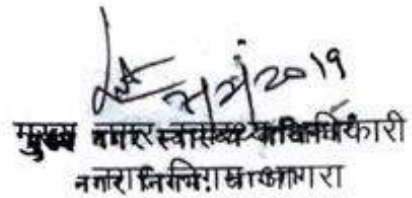 2/2/2019
मुख्य नगर स्वास्थ्य अधिकारी
नगर निगम, आगरा